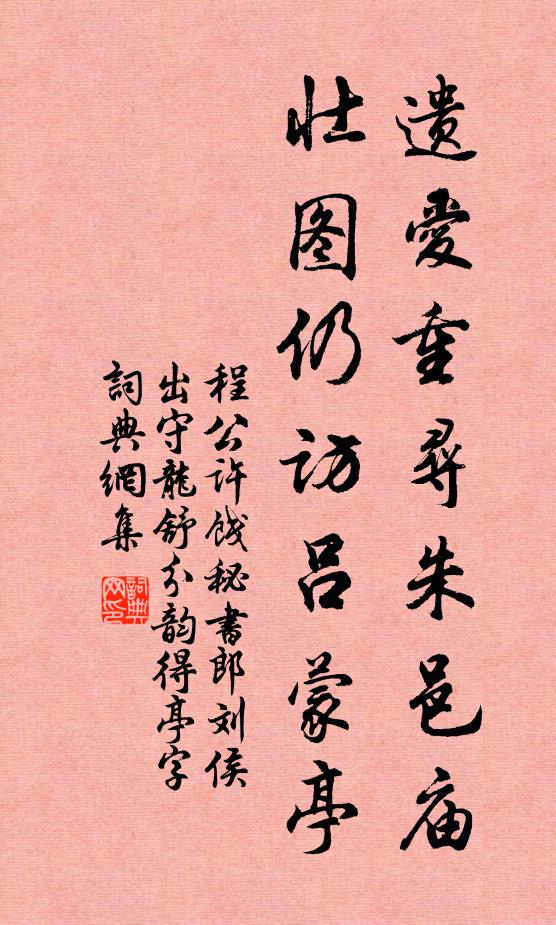 遗爱重寻朱邑庙
壮图仍访吕蒙亭
程公许饯秘书郎刘侯
出守龙舒分韵得亭字
詞典網集
詞典
网印